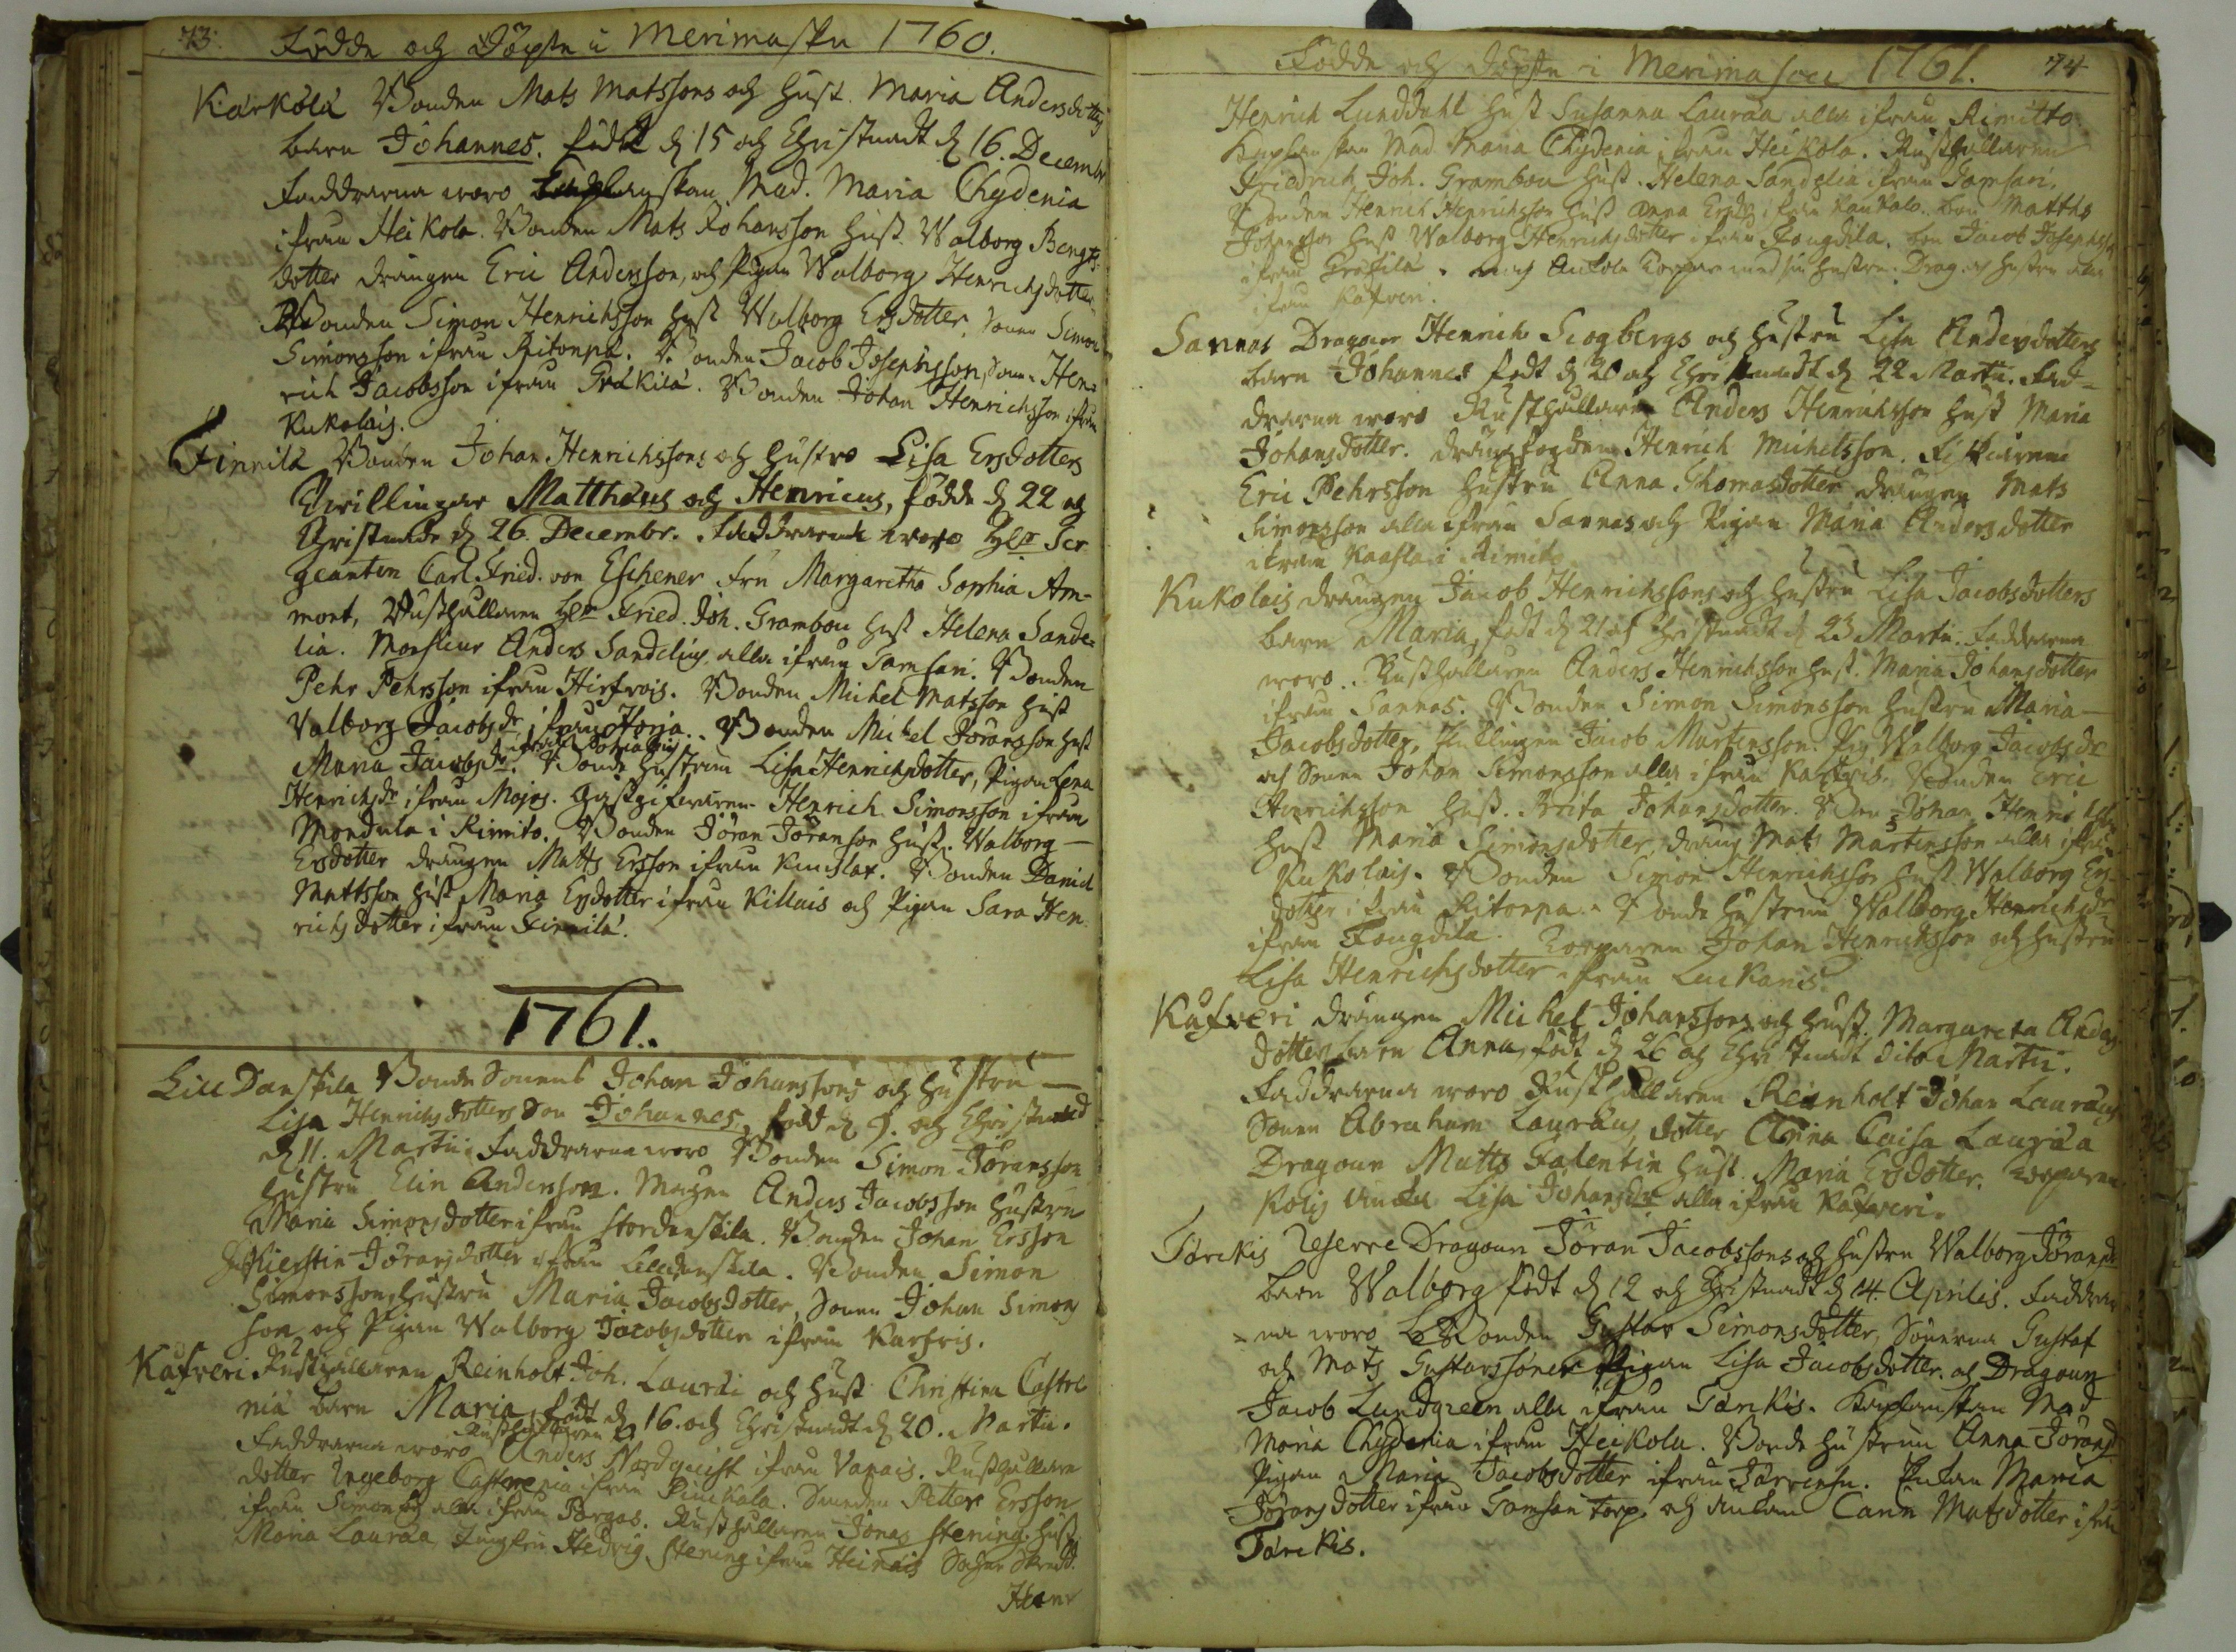 73.
Födde och Döpte i Merimasku 1760.
Karkola Bonden Mats Matssons och Hust. Maria Andersdotters
barn Johannes. född d. 15 och Christnadt d. 16. Decembr
Faddrarna woro Caplanskan Mad. Maria Chydenia
ifrån Heikola. Bonden Mats Johansson Hust. Walborg Bengts
dotter drängen Eric Andersson, och Pigan Walborg Henrichsdotter
Bonden Simon Henrichsson Hust Walborg Ersdotter, Sonen Simon
Simonsson ifrån Ritonpä. Bonden Jacob Josephsson, Son Hen-
rich Jacobsson ifrån Gräkilä. Bonden Johan Henrichsson ifrån
Kukolais.
Finnilä Bonden Johan Henrichssons och Hustro Lisa Ersdotters
Twillingar Matthæus och Henricus, födde d. 22 och
Christnade d. 26. Decembr. Faddrarna woro Hr Ser
geanten Carl Fried. von Eschener Fru Margaretha Sophia Am-
mont, Rusthållaren Hr Fried. Joh. Grambou Hust Helena Sande-
lia. Monsieur Anders Sandelius alla ifrån Samsari. Bonden
Pehr Pehrsson ifrån Hirfvois. Bonden Michel Matsson Hust
Valborg Jacobsdr ifrån Korja. Bonden Michel Jöransson Hust
Maria Jacobsdr. Bonde Hustrun Lisa Henrichsdotter, Pigan Lena
Henrichsdr ifrån Mojos. Gästgifwaren Henrich Simonsson ifrån
Mondula i Rimito. Bonden Jöran Jöransson Hust. Walborg
Ersdotter drängen Matts Ersson ifrån Kuuslax. Bonden Daniel
Mattsson Hust Maria Ersdotter ifrån Killais och Pigan Sara Hen
richsdotter ifrån Finnilä.
1761.
Lill Danskila Bonde Sonens Johan Johanssons och Hustru
Lisa Henrichsdotters Son Johannes, född d. 9. och Christnad
d. 11. Martii. Faddrarna woro Bonden Simon Jöransson
Hustru Elin Anderson. Mågen Anders Jacobsson Hustru
Maria Simonsdotter ifrån Stordanskila. Bonden Johan Ersson
H. Kierstin Jöransdotter ifrån Lilldanskila. Bonden Simon
Simonsson, Hustru Maria Jacobsdotter, Sonen Johan Simons
son och Pigan Walborg Jacobsdotter ifrån Karfvis.
Kåfveri Rusthållaren Reinholt Joh. Lauræi och Hust Christina Castre
nia barn Maria, född d. 16. och Christnadt d. 20. Martii.
Faddrarna woro Rusthållaren Anders Nordquist ifrån Vanais. Rusthållare
dotter Ingeborg Castrenia ifrån Piukala. Petter Ersson
ifrån Simon alla ifrån Pargas. Rusthållaren Jonas Stening Hust.
Maria Lauræa Jungfru Hedvig Stening ifrån Heinais
Henr

Födde och döpte i Merimasku 1761. 74
Henrich Lunddahl Hust Susanna Lauræa alla ifrån Rimitto.
Caplanskan Mad. Maria Chydenia ifrån Heikola. Rusthållaren
Friedrich Joh. Grambou Hust. Helena Sandelia ifrån Samsari.
Bonden Henrich Henrichsson Hust Anna ifrån Kaukalo. Matths
Johansson Hust Walborg Henrichsdotter ifrån Fougdila. Bon Jacob Josephss
ifrån Gräkilä. med sin Hustru. Drag. och Hustru alla
ifrån Kåfveri.
Sannas Dragoun Henrich Siogbergs och Hustru Lisa Andersdotters
barn Johannes född d. 20 och Christnadt d. 22 Martii. Fad-
drarna woro Rusthållaren Anders Henrichsson Hust Maria
Johansdotter. drängfogden Henrich Michelsson.
Eric Pehrsson Hustru Anna Thomasdotter drängen Mats
Simonsson alla ifrån Sannas och Pigan Maria Andersdotter
ifrån Kaasla i Rimito
Kukolais drängen Jacob Henrichssons och Hustru Lisa Jacobsdotters
barn Maria, född d. 21 och Christnadt d. 23 Martii. Faddrarna
woro. Rusthållaren Anders Henrichsson Hust. Maria Johansdotter
ifrån Sannas. Bonden Simon Simonsson Hustru Maria
Jacobsdotter, Jacob Mårtensson. Pig Walborg Jacobsdr
och Sonen Johan Simonsson alla ifrån Karfvis. Bonden Eric
Henrichsson Hust. Brita Johansdotter. Bon Johan Henrichss
Hust Maria Simonsdotter, dräng Mats Mårtensson alla ifrån
Kukolais. Bonden Simon Henrichsson Hust Walborg Ers
dotter ifrån Ritonpä. Bonde Hustrun Walborg Henrichsdr
ifrån Fougdila. Torparen Johan Henrichsson och Hustru
Lisa Henrichsdotter ifrån Luckanis.
Kåfveri drängen Michel Johanssons och Hust. Margareta Anders
dotters barn Anna, född d. 26 och Christnadt dito Martii.
Faddrarna woro Rusthållaren Reinholt Johan Lauræus
Sonen Abraham Lauræus, dotter Anna Caisa Lauræa
Dragoun Matts Falentin Hust Maria Ersdotter. Torparen
Lisa Johansdr alla ifrån Kåfveri.
Tärckis Reserve Dragoun Jöran Jacobssons och Hustru Walborg Jöransdr
barn Walborg född d. 12 och Christnadt d. 14. Aprilis. Faddrar
na woro Bonden Gustav Simonsdotter, Sönerna Gustaf
och Mats Gustavssöner Pigan Lisa Jacobsdotter. och Dragoun
Jacob Lundgreen alla ifrån Tärckis. Caplanskan Mad
Maria Chydenia ifrån Heikola. Bonde Hustrun Anna Jöransd
Pigan Maria Jacobsdotter ifrån Järvensu. Enkan Maria
Jöransdotter ifrån Samsari Torp och Enkan Carin Matsdotter ifrån
Tärckis.